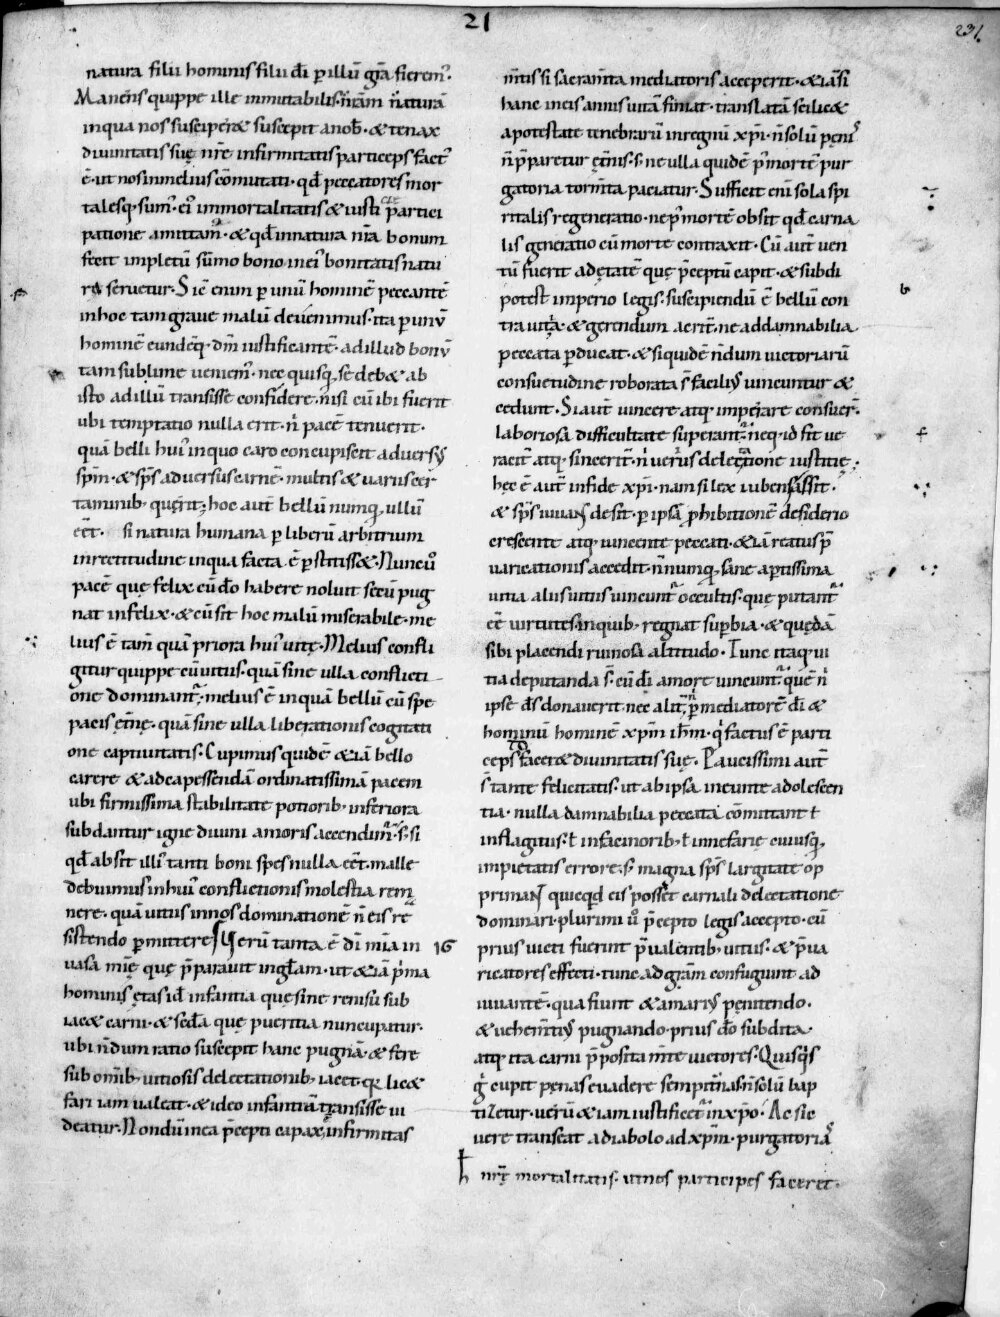 21
231.
natura filii hominis filii d̄i ꝑ illū gr̄a fierem᷒.
Manens quippe ille inmutabilis. nr̄am naturā
in qua nos susciperet suscepit a nob̄. & tenax
diuinitatis suę nr̄e infirmitatis particeps fact᷒
ē. ut nos in melius cōmutati. qd̄ peccatores mor
talesq; sum᷒. ei᷒ immortalitatis & iusticię partici
patione amittam᷒. & qd̄ in natura nr̄a bonum
fecit impletū sūmo bono in ei᷒ bonitatis natu
ra seruetur. Sic enim ꝑ unū hominē peccantē
in hoc tam graue malū deuenimus. ita ꝑ unū
hominē eundēq; dm̄ iustificantē. ad illud bonū
tam sublime veniem᷒. nec quisq; se debet ab
isto ad illū transisse confidere. nisi cū ibi fuerit
ubi temptatio nulla erit. n̄ pacē tenuerit.
quā belli hui᷒ in quo caro concupiscit aduersus
spm̄. & sps̄ aduersus carnē. multis & variis cer
taminib; querit; hoc aut̄ bellū numq; ullū
eēt. si natura humana ꝑ liberū arbitrium
in rectitudine in qua facta ē ꝑstitisset. Nunc ū
pacē quę felix cū d̄o habere noluit secū pug
nat infelix. & cū sit hoc malū miserabile. me
lius ē tam̄ quā priora hui᷒ uitę. Melius confli
gitur quippe cū uitiis. quā sine ulla conflicti
one dominant᷒; melius ē inquā bellū cū spe
pacis ęt̄nę. quā sine ulla liberationis cogitati
one captiuitatis. Cupimus quidē & iā bello
carere & ad capessendā ordinatissimā pacem
ubi firmissima stabilitate potiorib; inferiora
subdantur igne diuini amoris accendim᷒. s; si
qd̄ absit illi᷒ tanti boni spes nulla eēt. malle
debuimus in hui᷒ conflictionis molestia rem
nere. quā uitiis in nos dominationē n̄ eis re
sistendo ꝑmittere. Uerū tanta ē d̄i mīa in 16
uasa mīę quę p̄parauit in gl̄am. ut & iā p̄ma
hominis ętas id̄ infantia quę sine renisu sub
iacet carni. & scd̄a quę pueritia nuncupatur.
ubi n̄dum ratio suscepit hanc pugnā. & fere
sub omīb; uitiosis delectationib; iacet. qa licet
fari iam ualeat. & ideo infantiā transisse ui
deatur. Nondū in ea p̄cepti capax infirmitas
m̄tis si sacram̄ta mediatoris acceperit. & iā si
hanc in eis annis uitā finiat. translatā scilicet
a potestate tenebrarū in regnū xp̄i. n̄ solū pęnis
n̄ p̄paretur ęt̄nis. s; ne ulla quidē p᷒ mortē pur
gatoria torm̄ta paciatur. Sufficit enī sola spi
ritalis regeneratio. ne p᷒ mortē obsit qd̄ carna
lis generatio cū morte contraxit. Cū aut̄ ven
tū fuerit ad ętatē quę p̄ceptū capit. & subdi
potest imperio legis. suscipiendū ē bellū con
tra uitia. & gerendum acrit̄. ne ad damnabilia
peccata ꝑducat. & siquidē n̄dum uictoriarū
consuetudine roborata s̄ facilius uincuntur &
cedunt. Si aut̄ uincere atq; imperare consuer̄.
laboriosa difficultate superant᷒. neq; id fit ue
racit̄ atq; sincerit̄. n̄ uerius delectatione iustitię;
hec ē aut̄ in fide xp̄i. nam si lex iubens assit.
& sps̄ iuuans desit. ꝑ ipsā p̄hibitionē desiderio
crescente atq; uincente peccati. & iā reatus p̄
uaricationis accedit. n̄ numq; sane aꝑtissima
uitia aliis uitiis uincunt᷒ occultis. quę putant᷒
eē uirtutes. in quib; regnat suꝑbia. & quędā
sibi placendi ruinosa altitudo. Tunc itaq; ui
tia deputanda s̄. cū d̄i amore uincunt᷒. quē n̄
ipse d̄s donauerit. nec alit̄ n̄ ꝑ mediatorē d̄i &
hominū hominē xp̄m ih̄m. q̄ factus ē parti
ceps facere & diuinitatis suę. Paucissimi aut̄
s̄ tantę felicitatis. ut ab ipsa ineunte adolescen
tia. nulla damnabilia peccata cōmittant ł
in flagitiis. ł in facinorib; ł in nefarię cuiusq;
impietatis errore. s; magna sps̄ largitate op
primant quicq̄d eis posset carnali delectatione
dominari. plurimi ū p̄cepto legis accepto. cū
prius uicti fuerint p̄ualentib; uitiis. & p̄ua
ricatores effecti. tunc ad gr̄am confugiunt ad
iuuantē. qua fiunt & amarius pęnitendo.
& uehem̄tius pugnando. prius d̄o subdita.
atq; ita carni p̄posita m̄te uictores. Quisq̄s
g̊ cupit pęnas euadere sempit̄nas. n̄ solū bap
tizetur. uerū & iam iustificet᷒ in xp̄o. Ac sic
uere transeat a diabolo ad xp̄m. purgatorias
ħ nr̄ę mortalitatis. ut nos participes faceret.